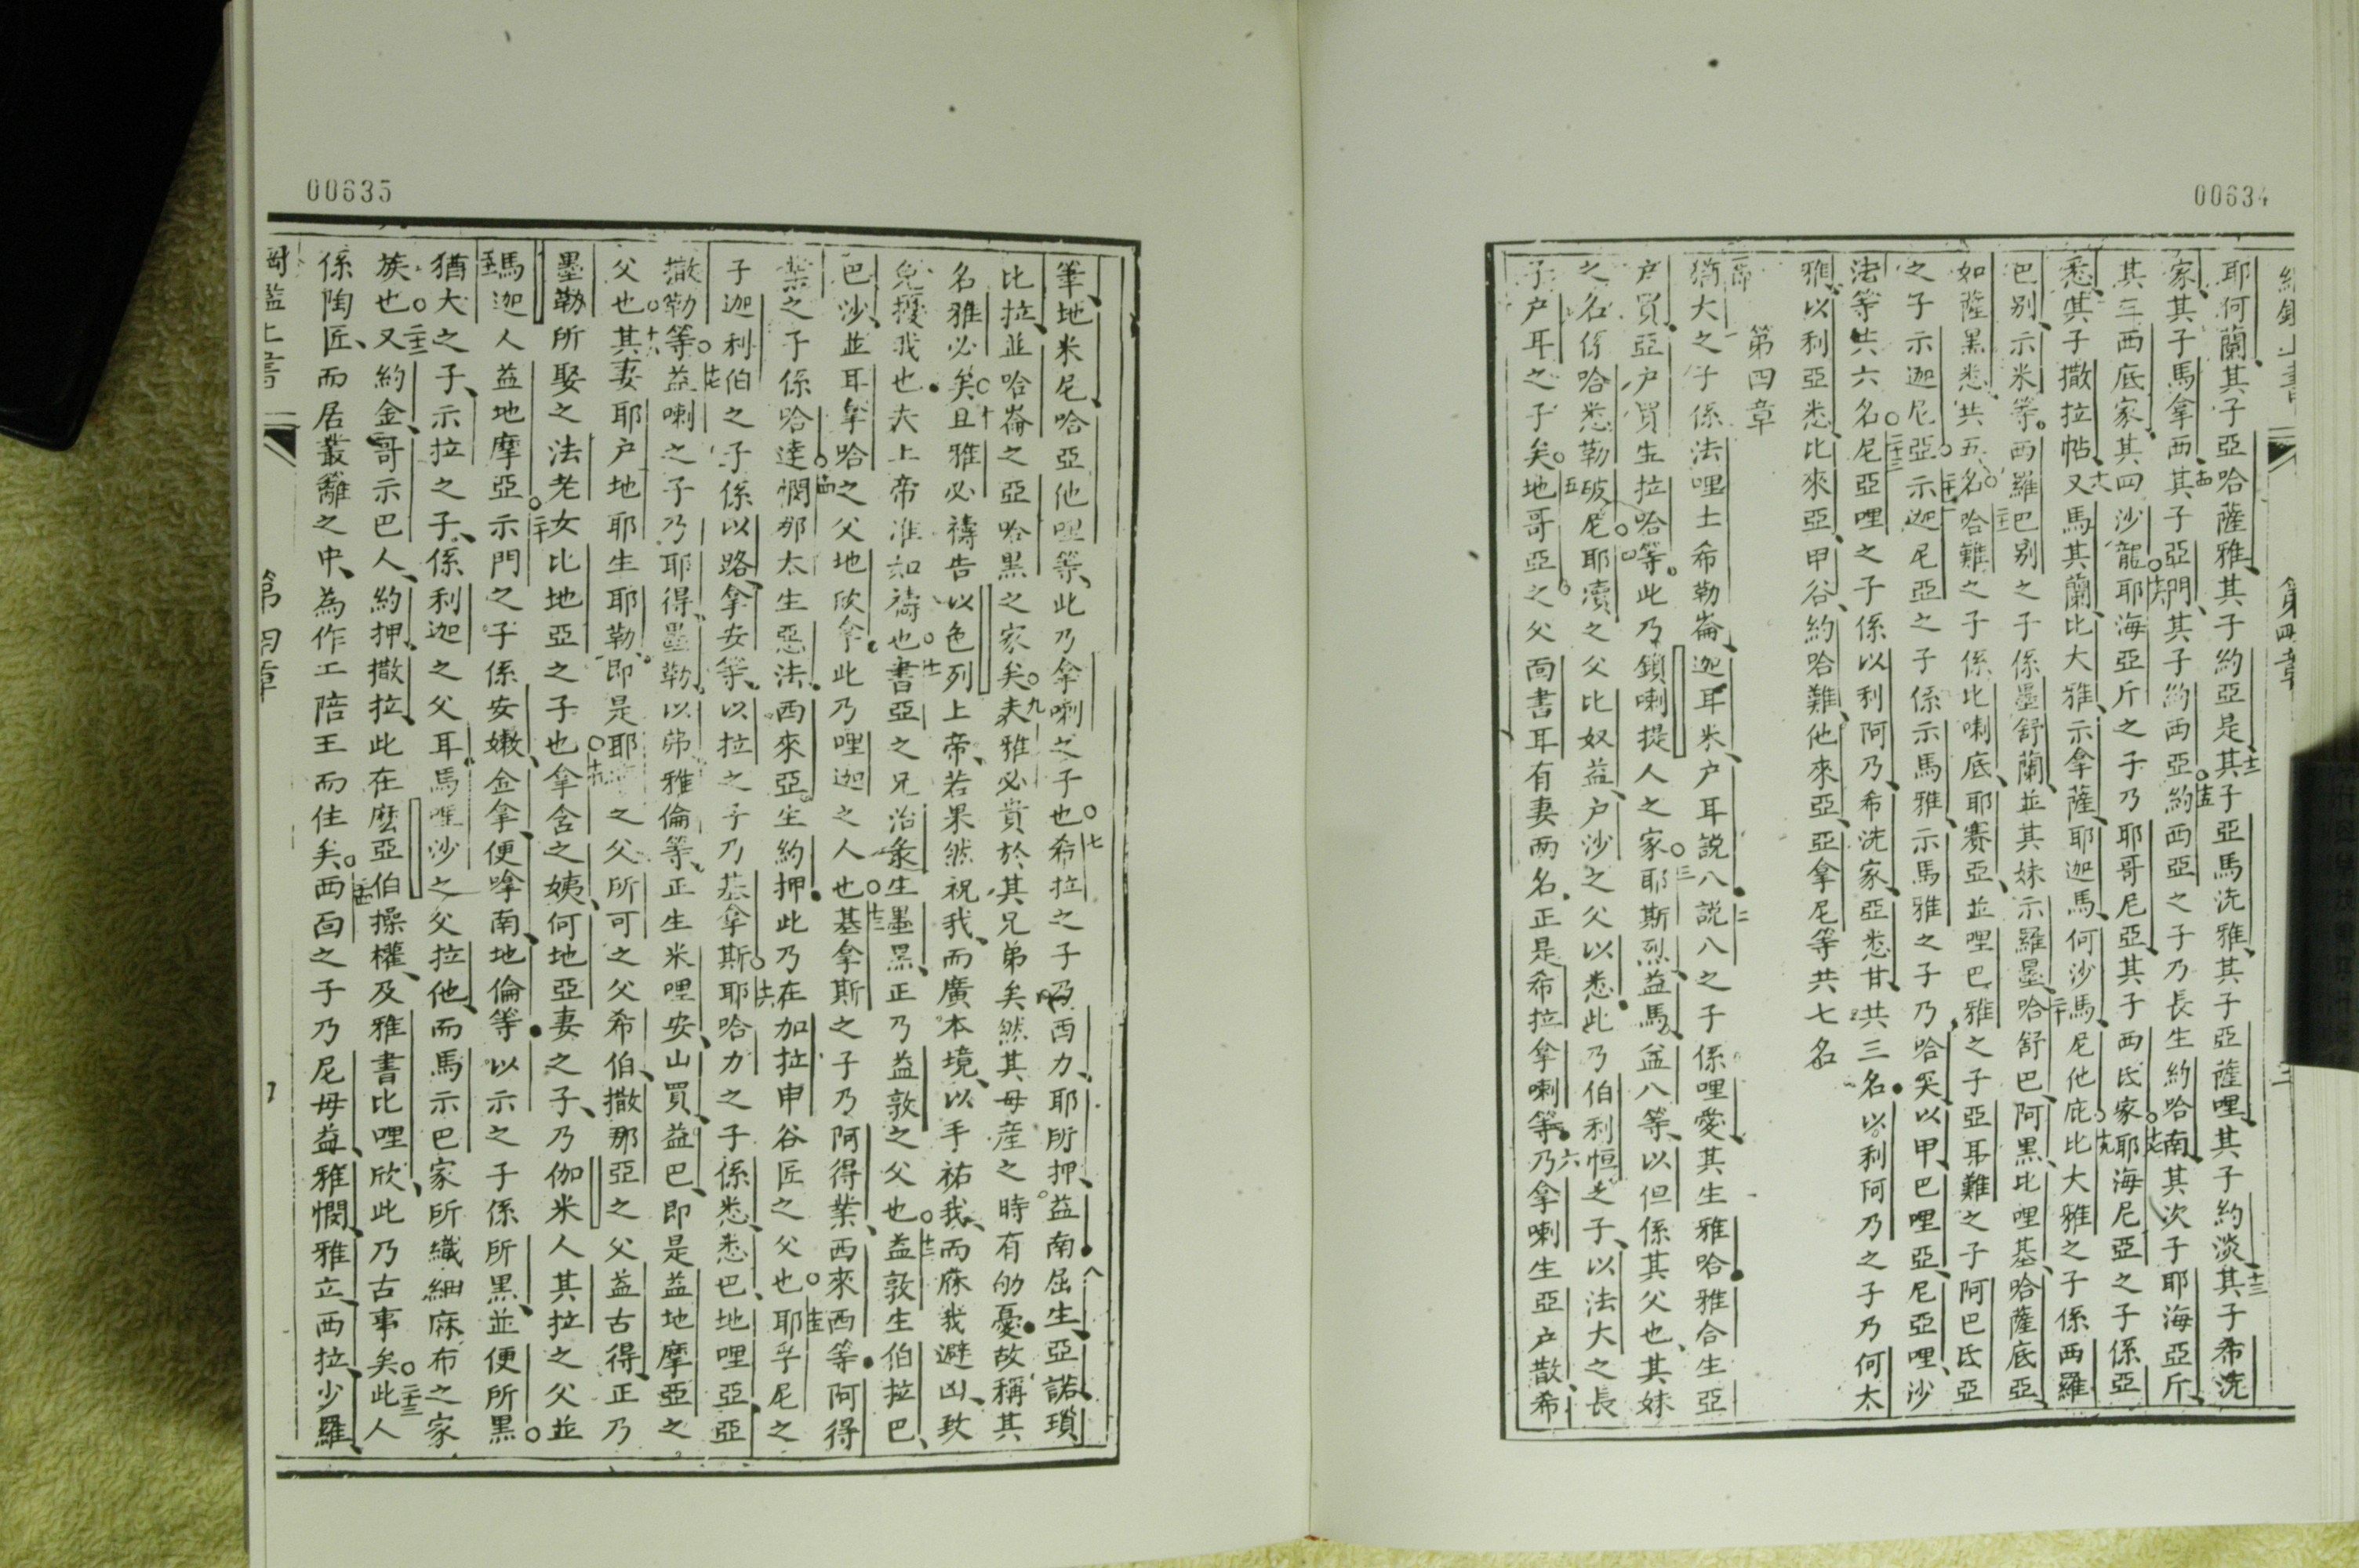 00634
耶何蘭其子亞哈薩雅其子約亞是其子亞馬洗雅其子亞薩哩其子約淡其子希洗
十二
十三
家其子馬拿西其子亞捫其子約西亞約西亞之子乃長生約哈南其次子耶海亞斤
十四
十五
其三西底家其四沙龍耶海亞斤之子乃耶哥尼亞其子西氐家耶海尼亞之子係亞
十六
十七
悉其子撒拉帖又馬其蘭比大雅示拿薩耶迦馬何沙馬尼他庇比大雅之子係西羅
十八
十九
巴別示米等西羅巴別之子係墨舒蘭並其妹示羅墨哈舒巴阿黑比哩基哈薩底亞
二十
如薩黑悉共五名哈難之子係比喇底耶賽亞並哩巴雅之子亞耳難之子阿巴氐亞
二十一
之子示迦尼亞示迦尼亞之子係示馬雅示馬雅之子乃哈突以甲巴哩亞尼亞哩沙
二十二
法等共六名尼亞哩之子係以利阿乃希洗家亞悉甘共三名以利阿乃之子乃何太
二十三
雅以利亞悉比來亞甲谷約哈難他來亞亞拿尼等共七名
第四章
一節
猶大之子係法哩士希勒崙迦耳米户耳説八説八之子係哩愛其生雅哈雅合生亞
二
户買亞户買生拉哈等此乃鎖喇提人之家耶斯烈益馬益八等以但係其父也其妹
三
之名係哈悉勒破尼耶瀆之父比奴益户沙之父以悉此乃伯利恒之子以法大之長
四
子户耳之子矣地哥亞之父面書耳有妻兩名正是希拉拿喇等乃拿喇生亞户散希
五
六
第四章
00635
筆地米尼哈亞他哩等此乃拿喇之子也希拉之子乃酉力耶所押益南屈生亞諾瑣
七
八
比拉並哈崙之亞哈黑之家矣夫雅必貴於其兄弟矣然其母產之時有劬憂故稱其
九
名雅必矣且雅必禱告以色列上帝若果然祝我而廣本境以手祐我而庥我避凶致
十
免擾我也夫上帝准如禱也書亞之兄治彖生墨黑正乃益敦之父也益敦生伯拉巴
十一
十二
巴沙並耳拿哈之父地欣拿此乃哩迦之人也基拿斯之子乃阿得業西來西等阿得
十三
業之子係哈達憫那太生惡法西來亞生約押此乃在加拉申谷匠之父也耶孚尼之
十四
十五
子迦利伯之子係以路拿安等以拉之子乃基拿斯耶哈力之子係悉悉巴地哩亞亞
十六
撒勒等益喇之子乃耶得墨勒以弗雅倫等正生米哩安山買益巴即是益地摩亞之
十七
父也其妻耶户地耶生耶勒即是耶之父所可之父希伯撒那亞之父益古得正乃
十八
墨勒所娶之法老女比地亞之子也拿含之姨何地亞妻之子乃伽米人其拉之父並
十九
馬迦人益地摩亞示門之子係安嫩金拿便嗱南地倫等以示之子係所黑並便所黑
二十
猶大之子示拉之子係利迦之父耳馬哩沙之父拉他而馬示巴家所織細麻布之家
族也又約金哥示巴人約押撒拉此在麽亞伯操權及雅書比哩欣此乃古事矣此人
二十二
二十三
係陶匠而居叢籬之中為作工陪王而住矣西面之子乃尼毋益雅憫雅立西拉少羅
二十四